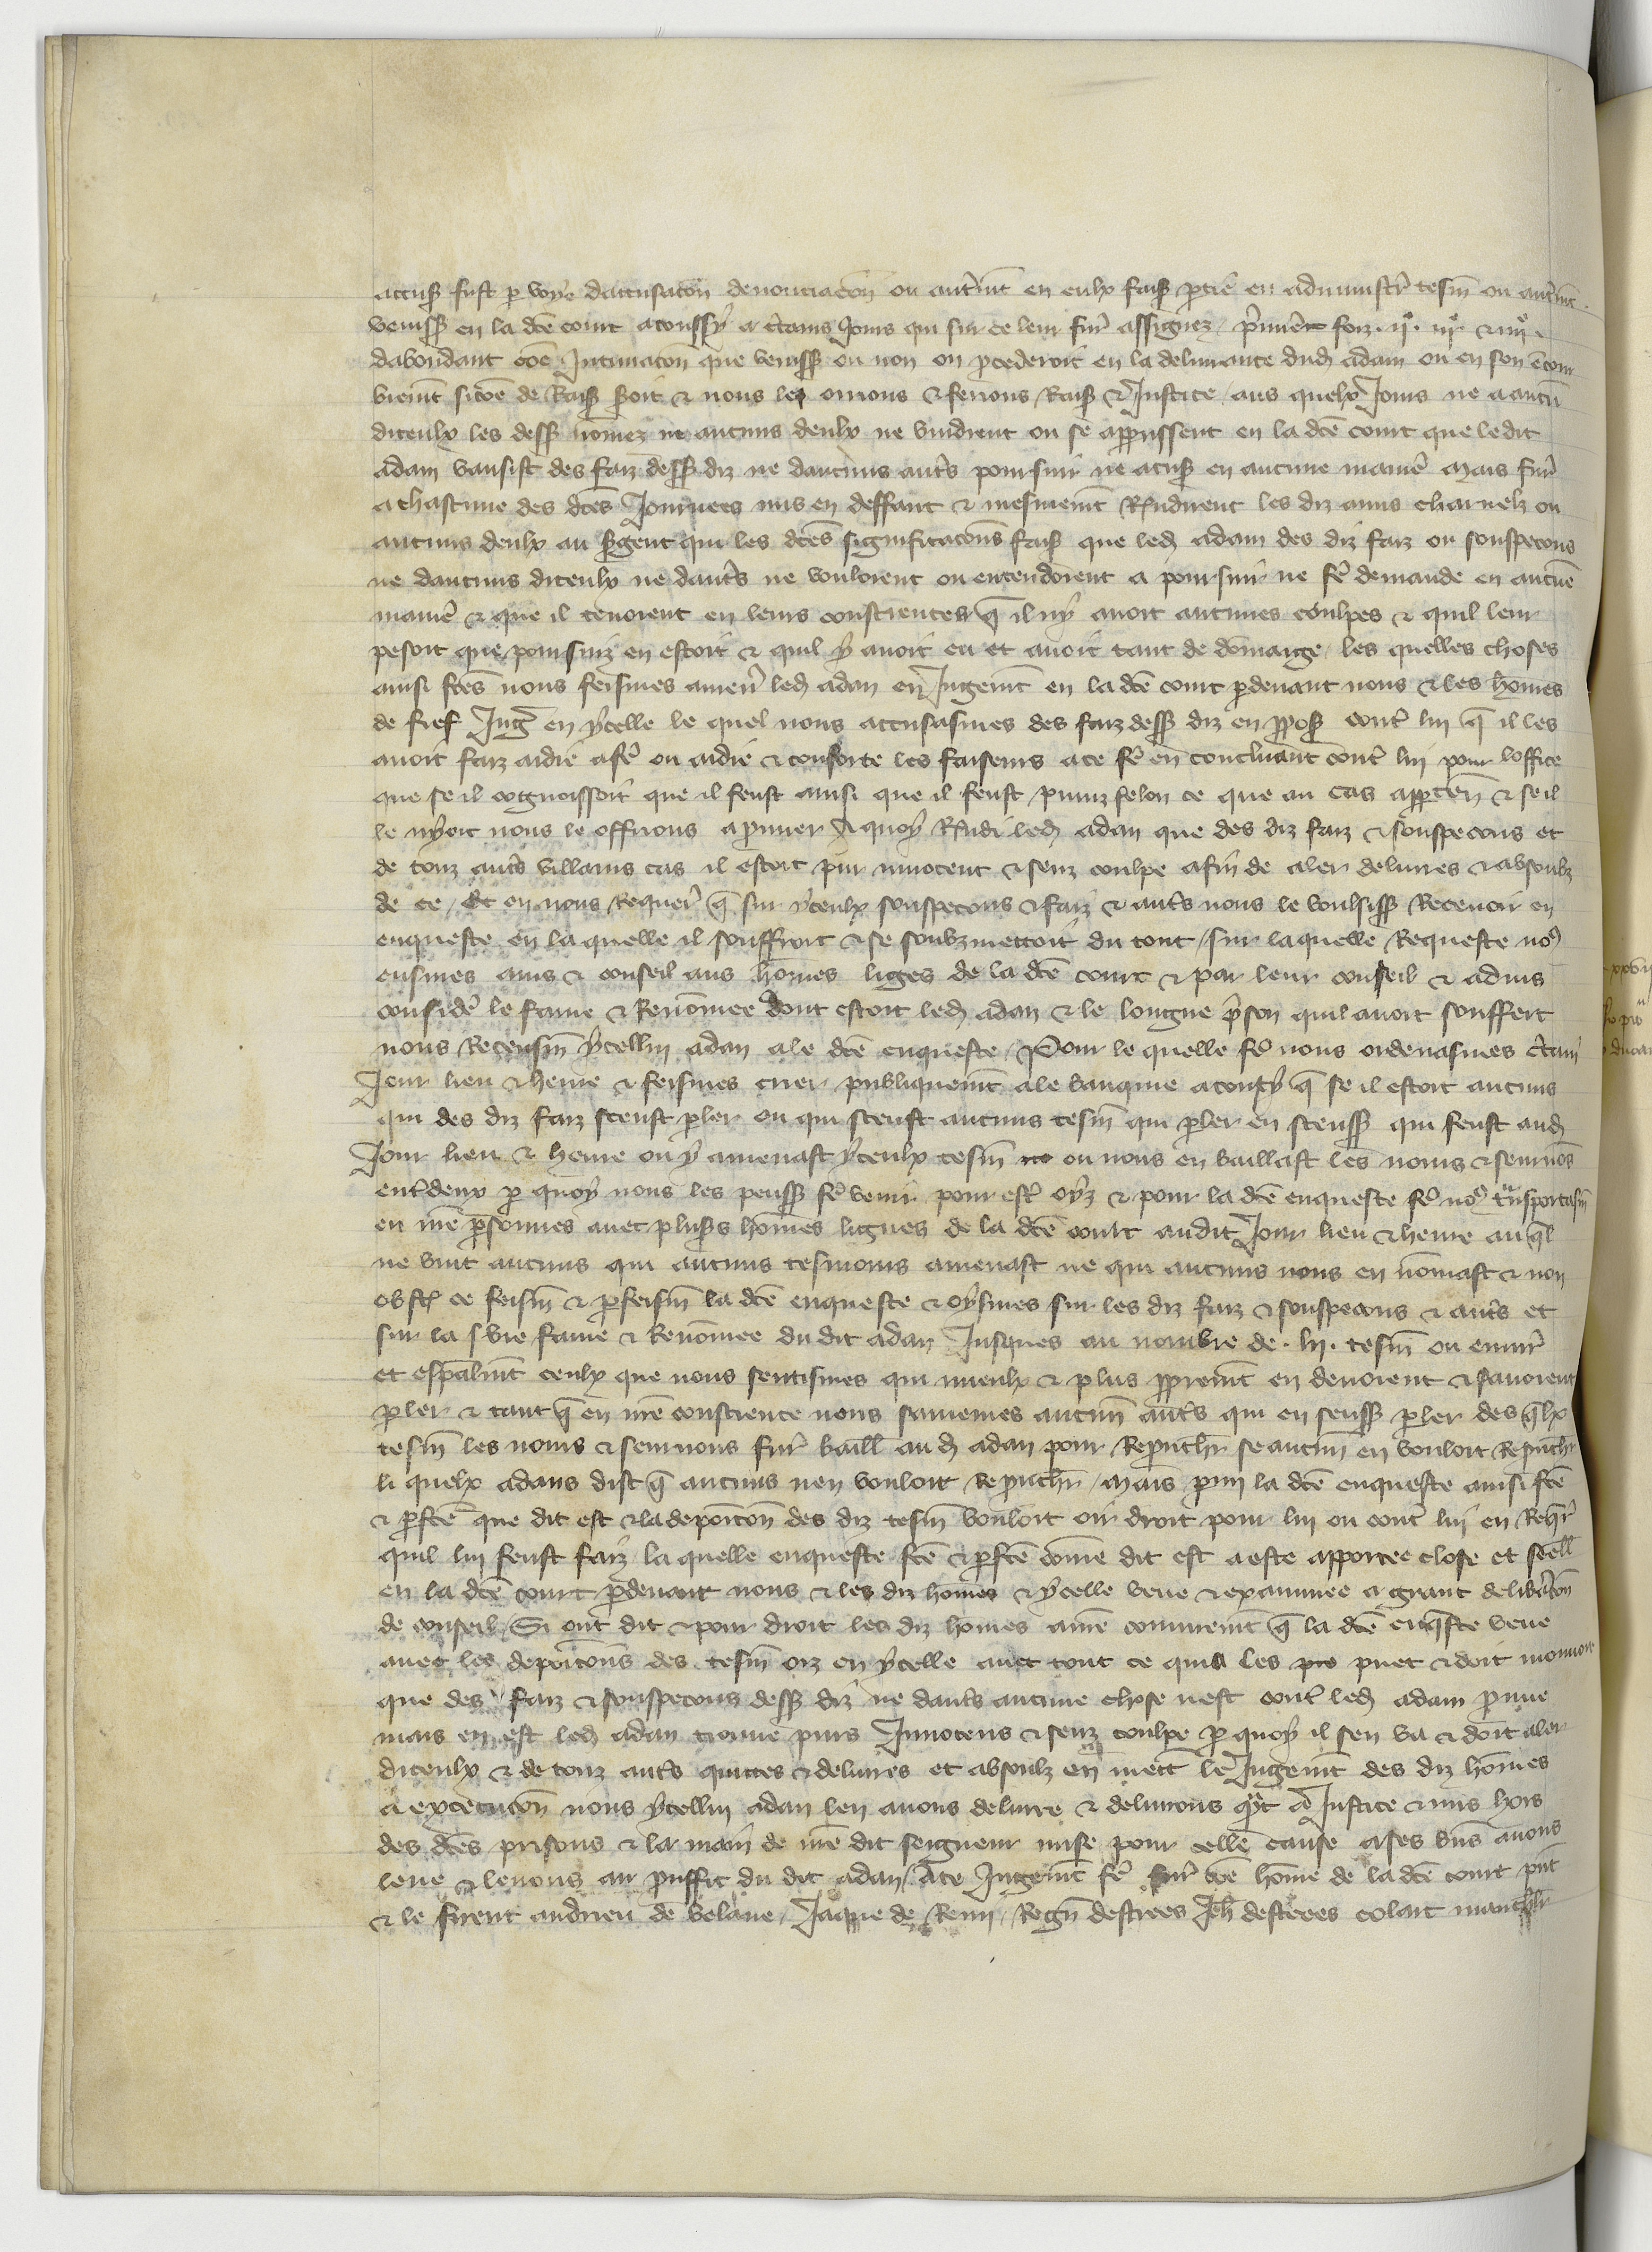 accuser fust p voye daccusacon denonciacon ou autremt en eulx fais partie en administr tesm ou autremt
venissent en la dce court a coussy a ctains Jours qui sur ce leur furent assignez premieremt foiz . ije . iije . & iiije .
dabondant coe Intimacon que venissent ou non on pcederoit en la delivrance dud adam ou en son
ne sicoe de Rais seroit & nous les orrions & ferions Rais & Justice aus quelx Jours ne aucun
diceulx les dess nomez ne aucuns deulx ne vindrent ou se apparussent en la dce court que ledit
adam vausist des faiz dess diz ne daucuns autrs poursuir ne acus en aucune maniere Mais furent
a chascune des dces Journees mis en deffaut & mesmemt Rndirent les diz amis charnelz ou
aucuns deulx au sgent qui les dces significacons fais que led adam des diz faiz ou souspecons
ne daucuns diceulx ne dautrs ne vouloient ou entendoient a poursuir ne fe demande en aucune
maniere & que il tenoient en leurs consciences q il ny avoit aucunes coulpes & quil leur
pesoit que poursuiz en estoit & quil y avoit eu et avoit tant de domaige les quelles choses
ainsi fces nous feismes amen led adan en Jugemt en la dce court pdevant nous & les homes
de fief Jug en ycelle le quel nous accusasmes des faiz dess diz en ppos contr lui q il les
avoit faiz aidie a fe ou aidie & conforte les faiseurs a ce fe en concluant contr lui pour loffice
que se il cognoissoit que il feust ainsi que il feust puniz selon ce que au cas apparten & se il
le nyoit nous le offrions a prouver A quoy Rndi led adan que des diz faiz & souspecons et
de touz autrs villains cas il estoit pur innocent & senz coulpe afin de aler delivres & absoulz
de ce / Et en nous Requer q sur yceulx souspecons & faiz & autrs nous le voulsiss Recevoir en
enqueste en la quelle il souffroit & se soubzmettoit du tout / sur laquelle Requeste nos
eusmes avis & conseil aus homes liges de la dce court & par leur conseil & advis
consider le fame & Renomee dont estoit led adan & le longue prison quil avoit souffert
nous Receusm ycellui adan a le dce enqueste / Pour le quelle fe nous ordenasmes ctain
Jour lieu & heure & feismes crier publiquemt a le banque a coucy q se il estoit aucuns
qui des diz faiz sceust pler ou qui sceust aucuns tesm qui pler en sceuss qui feust aud
Jour lieu & heure ou y amenast yceulx tesm ou nous en baillast les noms & seurnos
entr deux p quoy nous les peuss fe venir pour estr oyz & pour la dce enqueste fe nos tnsportasm
en nre psonnes avec pluss homes liges de la dce court audit Jour lieu & heure auql
ne vint aucuns qui aucuns tesmoins amenast ne qui aucuns nous en nomast & non
obst ce feism & pfeism la dce enqueste & oysmes sur les diz faiz & souspecons & autrs et
sur la vie fame & Renomee du dit adan Jusques au nombre de . lii . tesm ou envir
et espalmt ceulx que nous sentismes qui mieulx & plus ppremt en devoient & savoient
pler & tant q en nre conscience nous saviemes aucun autrs qui en seuss pler des qlx
tesm les noms & seurnous fur baill au d adan pour Repruchr se aucun en vouloit Repruchr
li quelx adans dist q aucuns nen vouloit Repruchr / Mais pmi la dce enqueste ainsi fce
& pfce que dit est & la depoicon des diz tesm vouloit oir droit pour lui ou contr lui en Reqr
quil lui feust faiz la quelle enqueste fce & pfce come dit est a este apportee close et seell
en la dce court pdevant nous & les diz homes & ycelle veue & examinee a grant delibracon
de conseil / Si ont dit & pour droit les diz homes comunemt q la dce enqste veue
avec les depoicons des tesm oiz en ycelle avec tout ce quil les puet & doit mouvoir
que des faiz & souspecons dess diz ne dautrs aucune chose nest contr led adam prouve
mais en est led adan trouve purs Innocens & senz coulpe p quoy il sen va & doit aler
diceulx & de touz autrs quittes & delivres et absoulz en mett le Jugemt des diz homes
a execucon nous ycellui adan len avons delivre & delivrons qrt a Justice & mis hors
des dces prisons & la main de nre dit seigneur mise pour celle cause a ses bns avons
leve & levons au pruffit du dit adan / A ce Jugemt fe fur coe home de la dce court pnt
& le firent andrieu de velane / Jaque de Remi / Regn destrees Jeh destrees colart